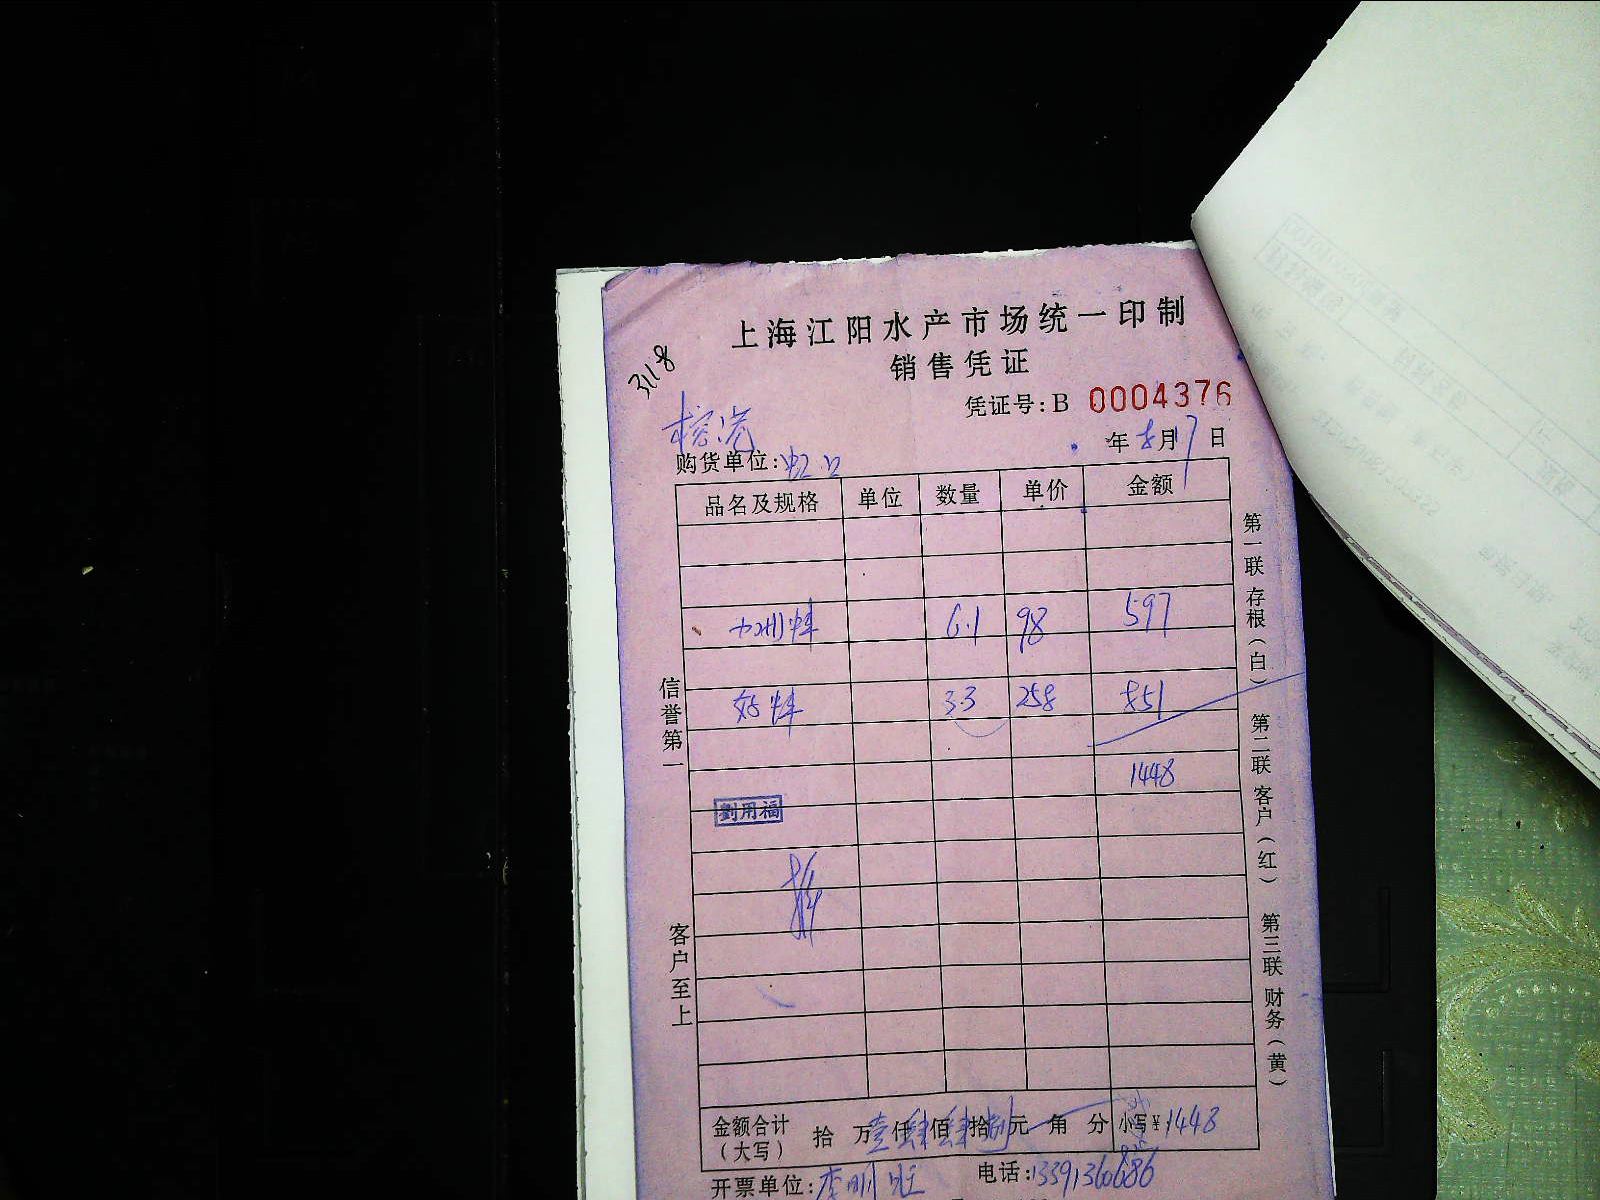 上海江阳水产市场统一印制
销售凭证
3118
凭证号:B 0004376
榕港
年 8月17日
购货单位:虹口
品名及规格 单位 数量 单价 金额
6.1 98 597
3.3 258 851
1448
劉用福
信誉第一
客户至上
第一联 存根(白) 第二联 客户(红) 第三联 财务(黄)
金额合计(大写) 拾 万壹仟肆佰肆拾捌元 角 分 小写¥1448
开票单位: 电话:13391360686